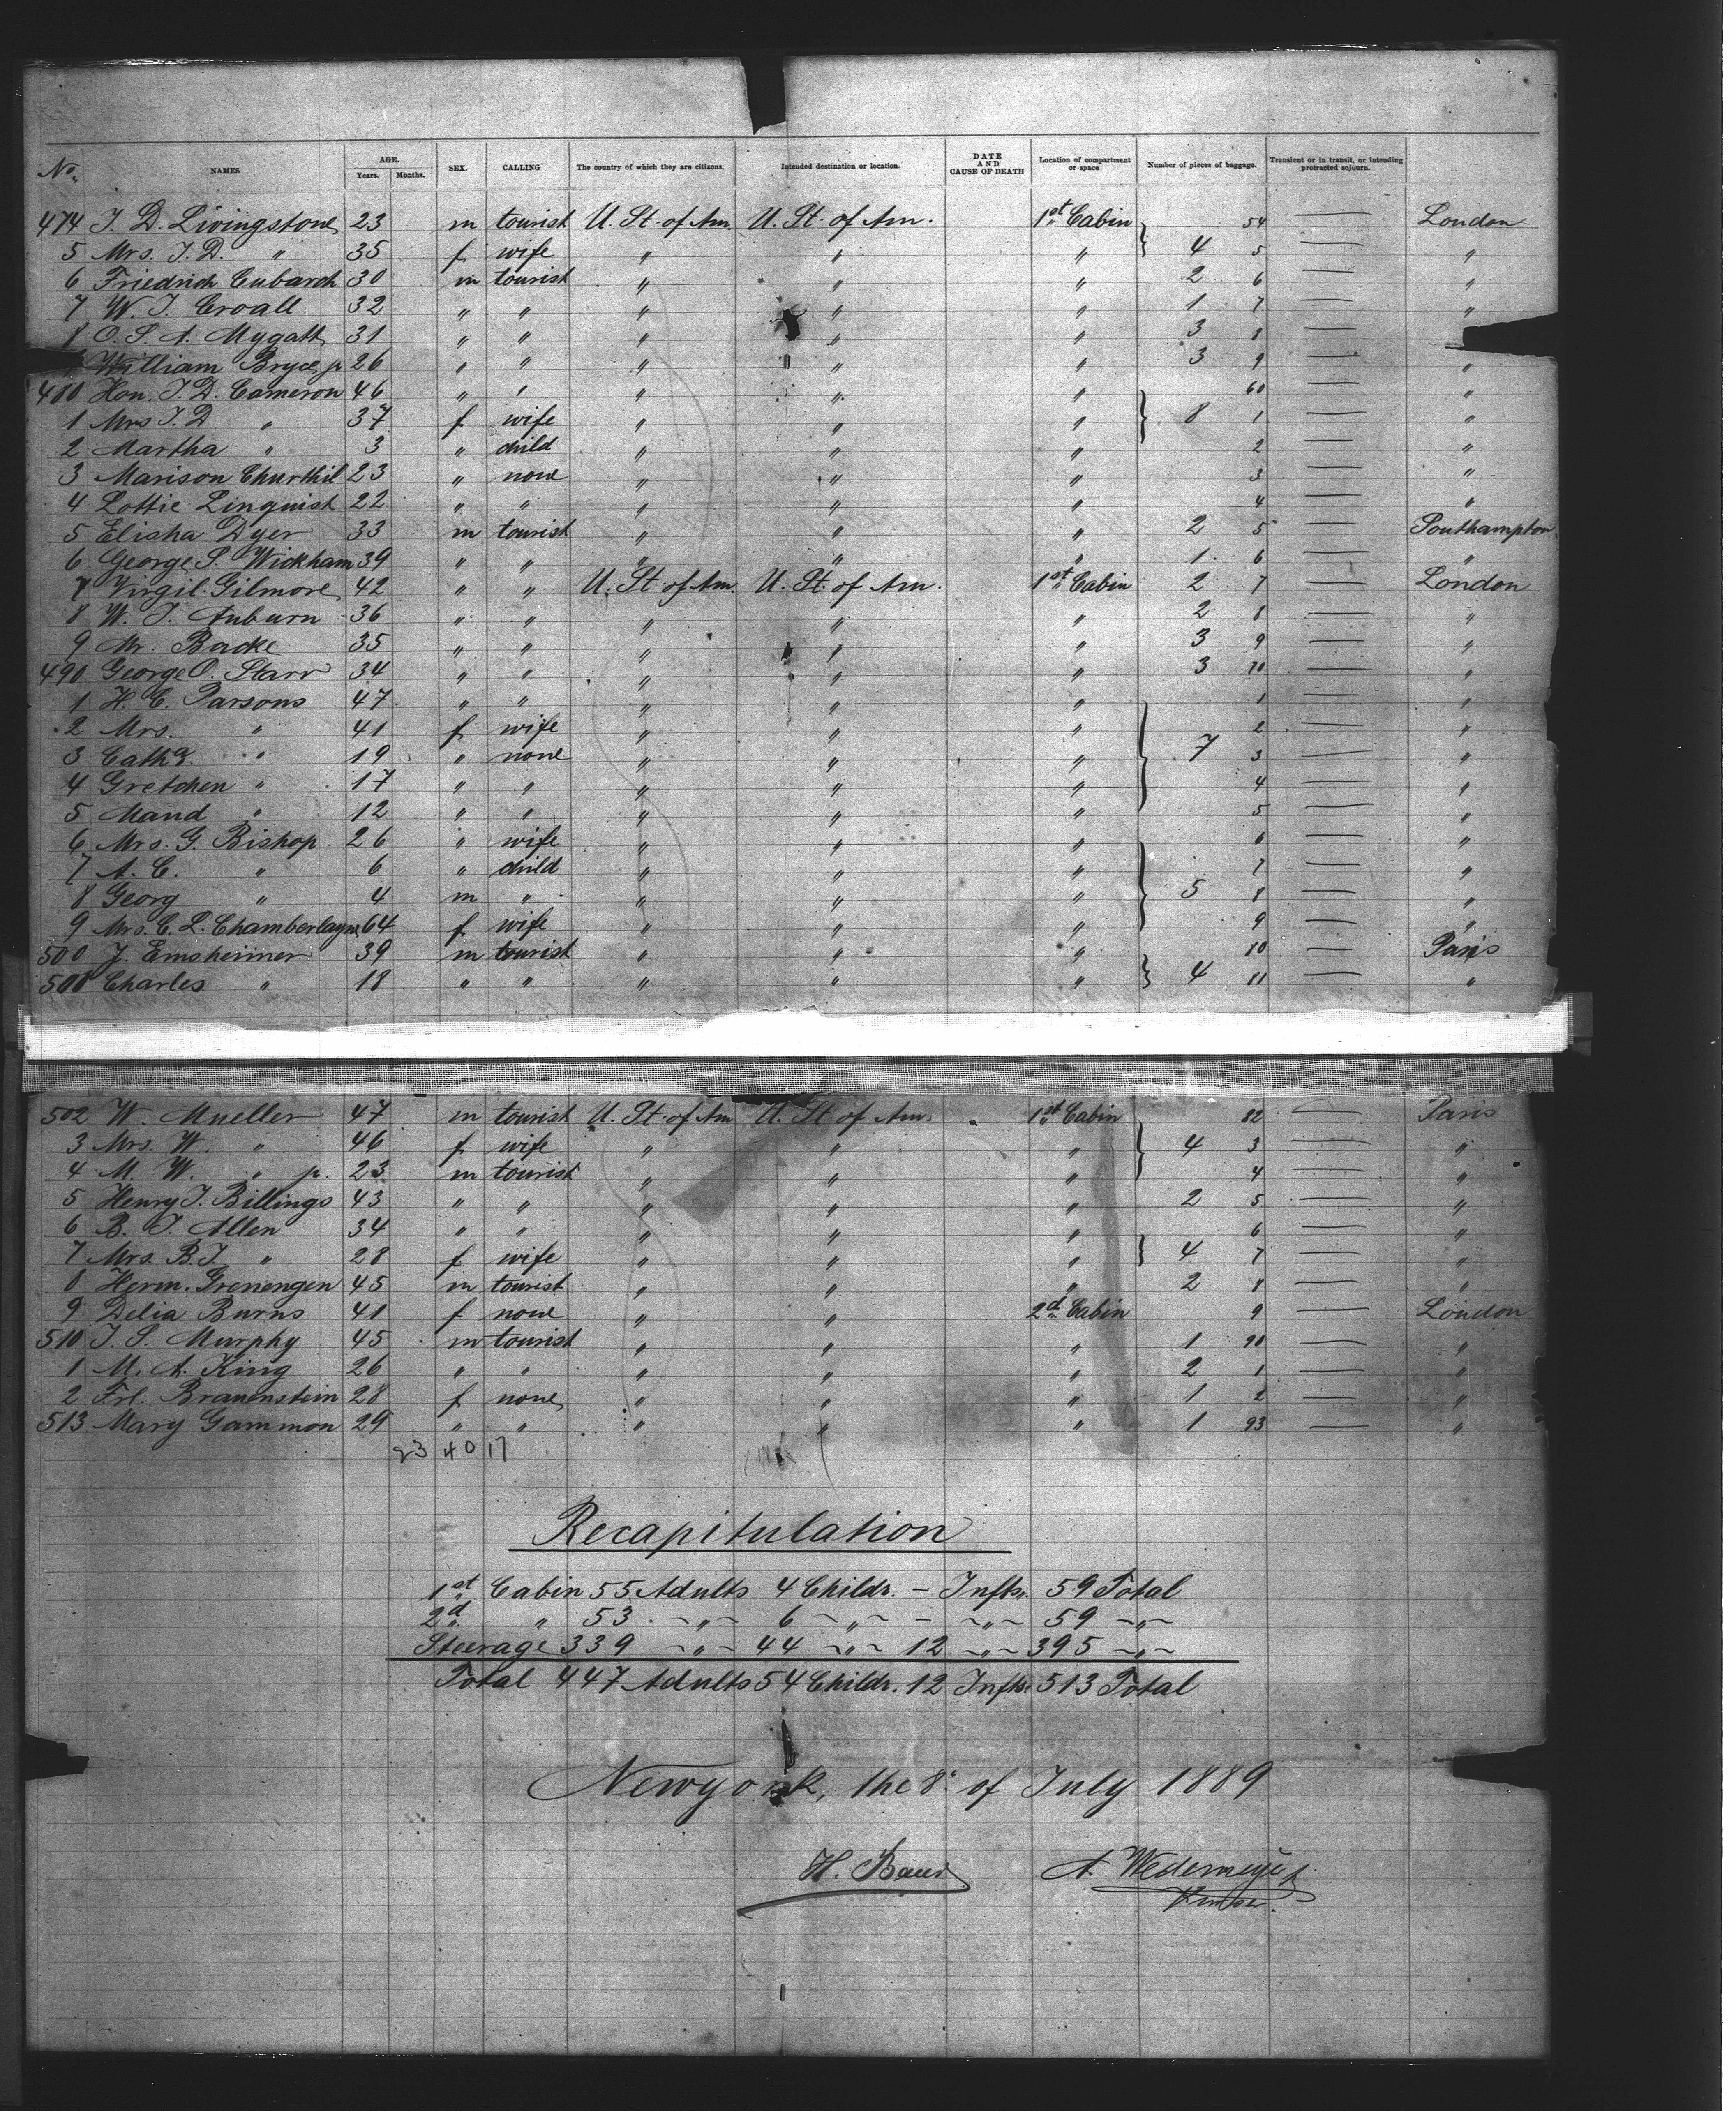 No. NAMES AGE. Years. Months. SEX. CALLING The country of which they are citizens. Intended destination or location. DATE AND CAUSE OF DEATH Location of compartment or space Number of pieces of baggage. Transient or in transit, or intending protracted sojourn.
474 J. D. Livingstone 23 m tourist U. St. of Am. U. St. of Am. 1st Cabin 54 — London
5 Mrs. J. D. " 35 f wife " " " 4 5 — "
6 Friedrich Cubarch 30 m tourist " " " 2 6 — "
7 W. J. Croall 32 " " " " " 1 7 — "
8 O. S. A. Mygatt 31 " " " " " 3 8 — "
William Bryce jr 26 " " " " " 3 9 — "
480 Hon. J. D. Cameron 46 " " " " " 60 — "
1 Mrs J. D " 37 f wife " " " 8 1 — "
2 Martha " 3 " child " " " 2 — "
3 Marison Churthil 23 " none " " " 3 — "
4 Lottie Linquist 22 " " " " " 4 — "
5 Elisha Dyer 33 m tourist " " " 2 5 — Southampton
6 George S. Wickham 39 " " " " " 1 6 — "
7 Virgil Gilmore 42 " " U. St. of Am. U. St. of Am. 1st Cabin 2 7 — London
8 W. J. Auburn 36 " " " " " 2 8 — "
9 Mr. Backe 35 " " " " " 3 9 — "
490 George O. Starr 34 " " " " " 3 70 — "
1 H. C. Parsons 47 " " " " " 1 — "
2 Mrs. " 41 f wife " " " 2 — "
3 Catha. " 19 " none " " " 7 3 — "
4 Gretchen " 17 " " " " " 4 — "
5 Mand " 12 " " " " " 5 — "
6 Mrs. G. Bishop 26 " wife " " " 6 — "
7 A. C. " 6 " child " " " 7 — "
8 Georg " 4 m " " " " 5 8 — "
9 Mrs. C. L. Chamberlayne 64 f wife " " " 9 — "
500 J. Emsheimer 39 m tourist " " " 80 — Paris
501 Charles " 18 " " " " " 4 81 — "
502 W. Mueller 47 m tourist U. St. of Am U. St. of Am. 1st Cabin 82 — Paris
3 Mrs. W. " 46 f wife " " " 4 3 — "
4 M. W. " jr. 23 m tourist " " " 4 — "
5 Henry J. Billings 43 " " " " " 2 5 — "
6 B. J. Allen 34 " " " " " 6 — "
7 Mrs. B. J. " 28 f wife " " " 4 7 — "
8 Herm. Grenengen 45 m tourist " " " 2 8 — "
9 Delia Burns 41 f none " " 2d Cabin 9 — London
510 J. S. Murphy 45 m tourist " " " 1 90 — "
1 M. A. King 26 " " " " " 2 1 — "
2 Frl. Brauenstein 28 f none " " " 1 2 — "
513 Mary Gammon 29 " " " " " 1 93 — "
23 40 17
Recapitulation
1st Cabin 55 Adults 4 Childr. – Infts. 59 Total
2d " 53 " 6 " – " 59 "
Steerage 339 " 44 " 12 " 395 "
Total 447 Adults 54 Childr. 12 Infts. 513 Total
Newyork, the 8. of July 1889
H. Baur A. Wedemeyer